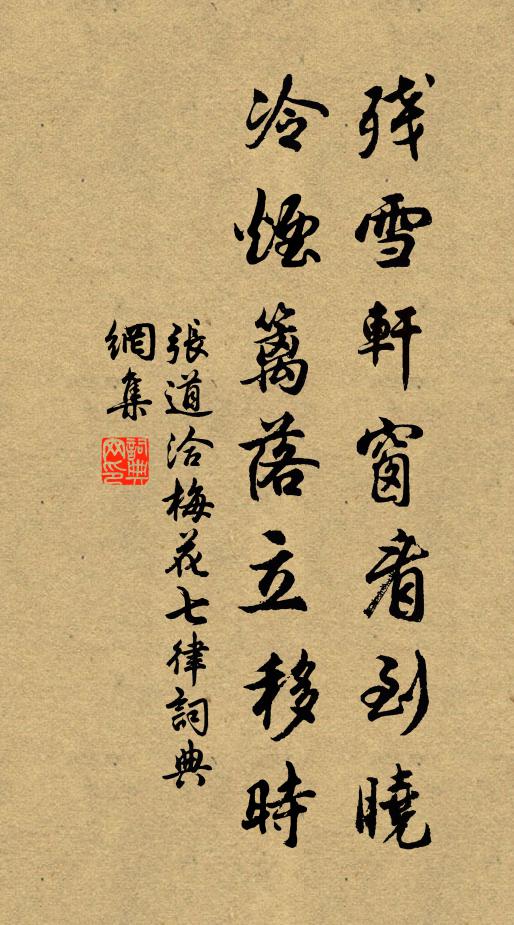 残雪軒窗看到曉
冷煙籬落立移時
張道洽梅花七律詞典
網集
詞典
网印